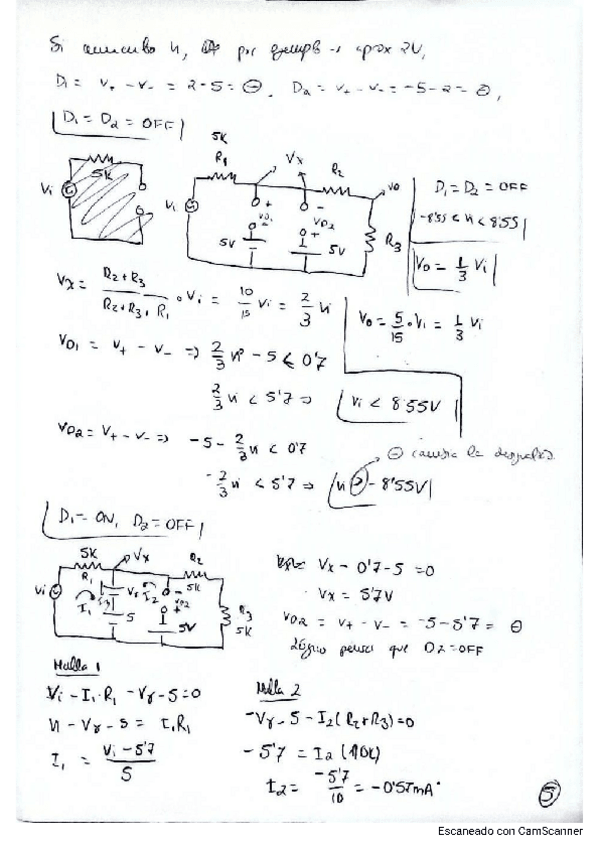 Si aumento Vi, por ejemplo → aprox 2V,
D1 = V+ - V- = 2-5 = ⊖. D2 = V+ - V- = -5-2 = ⊖,
D1 = D2 = OFF
5K
R1
Vx
R2
Vo
5K
Vi
Vi
VD1
VD2
5V
5V
R3
D1 = D2 = OFF
-8'55 < Vi < 8'55
Vo = 1/3 Vi
Vx = (R2+R3)/(R2+R3+R1) · Vi = 10/15 Vi = 2/3 Vi
Vo = 5/15 · Vi = 1/3 Vi
VD1 = V+ - V- => 2/3 Vi - 5 < 0'7
2/3 Vi < 5'7 => Vi < 8'55V
VD2 = V+ - V- => -5 - 2/3 Vi < 0'7
⊖ cambia la
-2/3 Vi < 5'7 => Vi > -8'55V
D1 = ON, D2 = OFF
5K
Vx
R2
Vi
R1
Vγ
I2
5K
I1
I3
VD2
5
5V
R3
5K
Vx - 0'7 - 5 = 0
Vx = 5'7V
VD2 = V+ - V- = -5 - 5'7 = ⊖
Lógico pensar que D2 = OFF
Malla 1
Vi - I1·R1 - Vγ - 5 = 0
Vi - Vγ - 5 = I1R1
I1 = (Vi - 5'7)/5
Malla 2
-Vγ - 5 - I2(R2+R3) = 0
-5'7 = I2 (10K)
I2 = -5'7/10 = -0'57mA
5
Escaneado con CamScanner